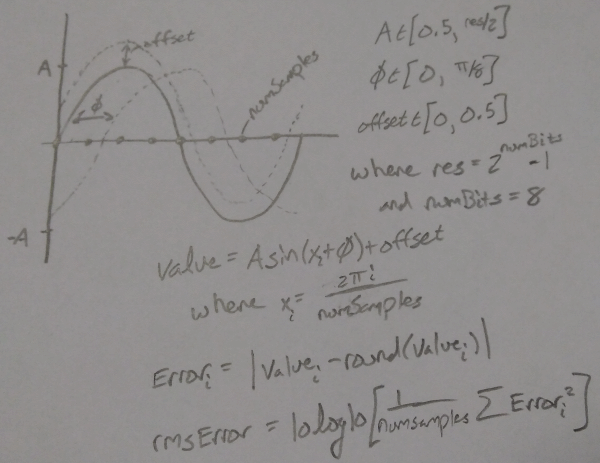 offset
A
ϕ
numSamples
-A
A∈[0.5, res/2]
ϕ∈[0, π/8]
offset∈[0, 0.5]
where res = 2^numBits -1
and numBits = 8
Value = A sin(xᵢ+ϕ)+offset
where xᵢ = 2πi / numSamples
Errorᵢ = |Valueᵢ - round(Valueᵢ)|
rmsError = 10log10[1/numsamples Σ Errorᵢ²]